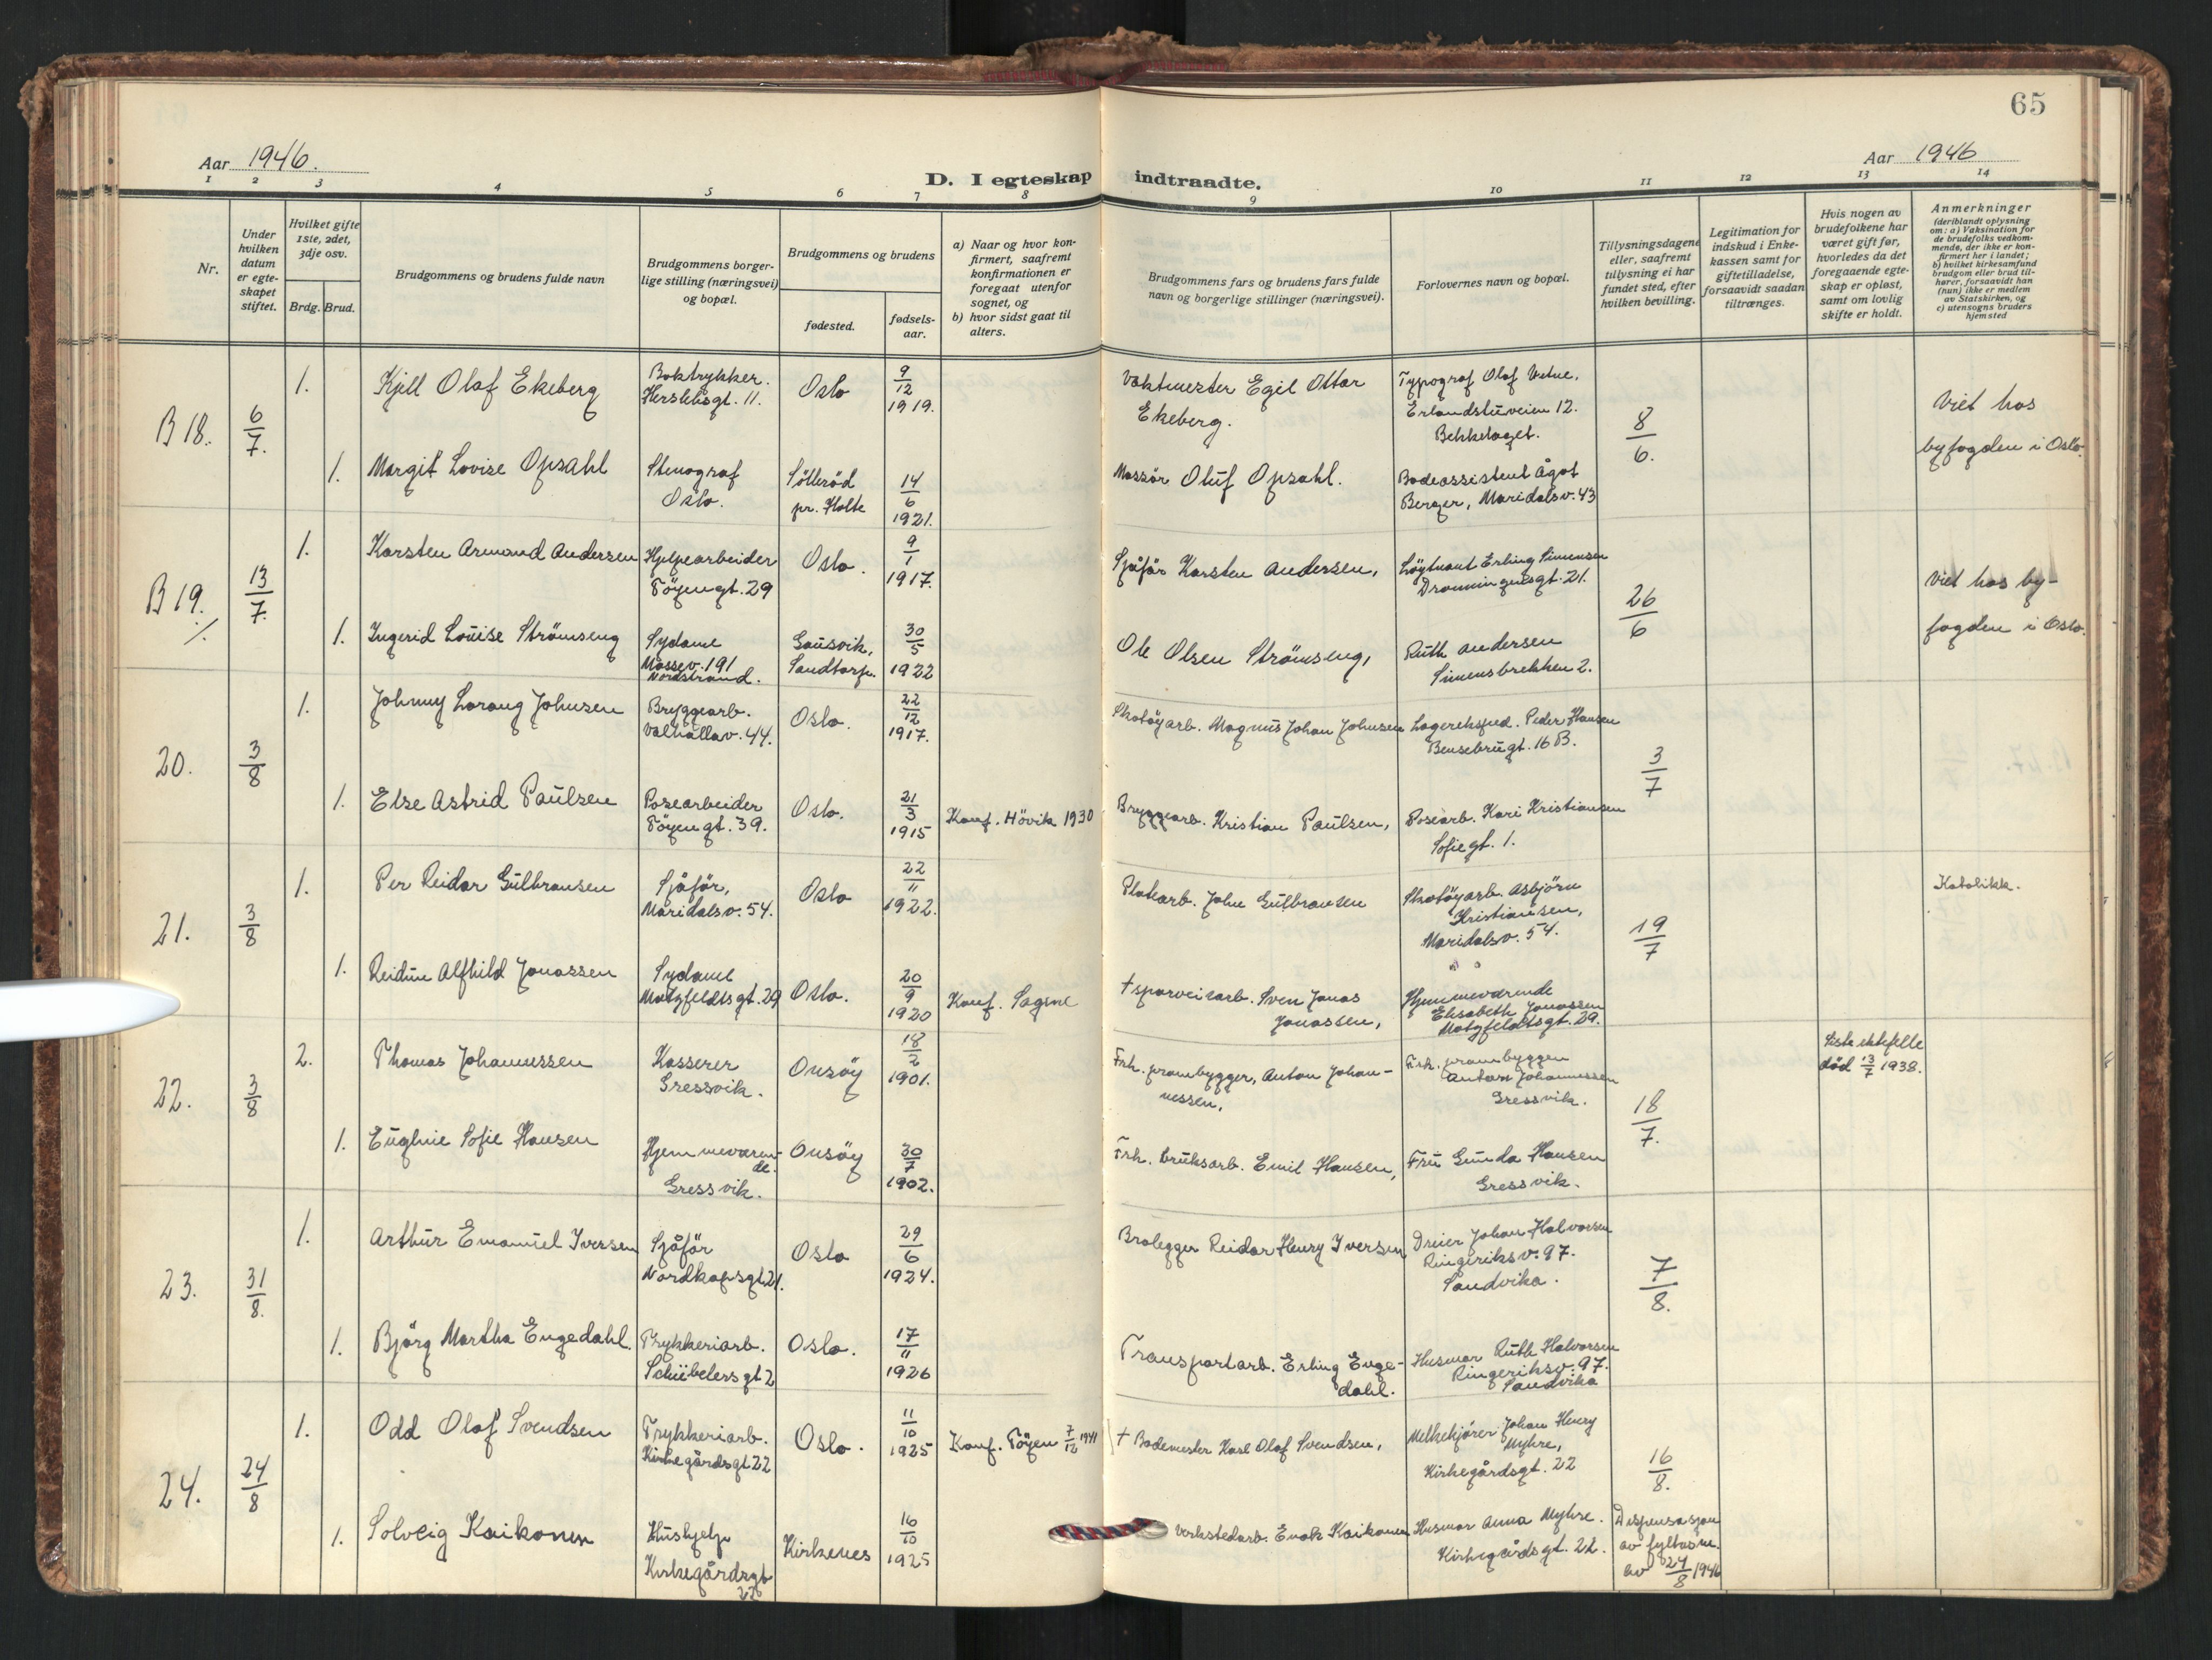 65
Aar 1946.
Aar 1946
D. I egteskap indtraadte.
1 2 3 4 5 6 7 8 9 10 11 12 13 14
Nr.
Under
hvilken
datum
er egte-
skapet
stiftet.
Hvilket gifte
1ste, 2det,
3dje osv.
Brdg.
Brud.
Brudgommens og brudens fulde navn
Brudgommens borger-
lige stilling (næringsvei)
og bopæl.
Brudgommens og brudens
fødested.
fødsels-
aar.
a) Naar og hvor kon-
firmert, saafremt
konfirmationen er
foregaat utenfor
sognet, og
b) hvor sidst gaat til
alters.
Brudgommens fars og brudens fars fulde
navn og borgerlige stillinger (næringsvei).
Forlovernes navn og bopæl.
Tillysningsdagene
eller, saafremt
tillysning ei har
fundet sted, efter
hvilken bevilling.
Legitimation for
indskud i Enke-
kassen samt for
giftetilladelse,
forsaavidt saadan
tiltrænges.
Hvis nogen av
brudefolkene har
været gift før,
hvorledes da det
foregaaende egte-
skap er opløst,
samt om lovlig
skifte er holdt.
Anmerkninger
(deriblandt oplysning
om: a) Vaksination for
de brudefolks vedkom-
mende, der ikke er kon-
firmert her i landet;
b) hvilket kirkesamfund
brudgom eller brud til-
hører, forsaavidt han
(hun) ikke er medlem
av Statskirken, og
c) utensogns bruders
hjemsted
B 18.
6/7.
1.
Kjell Olaf Ekeberg
Boktrykker.
Herslebsgt. 11.
Oslo
9/12
1919.
Vaktmester Egil Ottar
Ekeberg.
Typograf Olaf
Erlandstuveien 12.
Bekkelaget.
8/6.
Viet hos
byfogden i Oslo.
1.
Margit Lovise Opsahl
Stenograf
Oslo.
Sölleröd
pr. Holte
14/6
1921.
Massör Oluf Opsahl.
Badeassistent Ågot
Berger, Maridalsv. 43
B 19.
/.
13/7.
1.
Karsten Armand Andersen
Hjelpearbeider
Töyengt. 29
Oslo.
9/1
1917.
Sjåför Karsten Andersen,
Löytnant Erling Simensen
Dronningensgt. 21.
26/6
Viet hos by-
fogden i Oslo.
1.
Ingerid Louise Strömseng
Sydame
Mossev. 191
Nordstrand.
Gausvik,
Sandtorg.
30/5
1922
Ole Olsen Strömseng,
Ruth Andersen
Simensbrekken 2.
20.
3/8
1.
Johnny Lorang Johnsen
Bryggearb.
Valhallav. 44.
Oslo.
22/12
1917.
Skotöyarb. Magnus Johan Johnsen
Lagereksped. Peder Hansen
Bensebrugt. 16 B.
3/7
1.
Else Astrid Paulsen
Posearbeider
Töyengt. 39.
Oslo.
21/3
1915
Konf. Hövik 1930
Bryggearb. Kristian Paulsen,
Posearb. Kari Kristiansen
Sofiegt. 1.
21.
3/8
1.
Per Reidar Gulbransen
Sjåför,
Maridalsv. 54.
Oslo
22/11
1922.
Platearb. John Gulbransen
Skotöyarb. Asbjörn
Kristiansen,
Maridalsv. 54.
19/7
Katolikk.
1.
Reidun Alfhild Jonassen
Sydame
Motzfeldtsgt. 29
Oslo.
20/9
1920
Konf. Sagene
† sporveisarb. Sven Jonas
Jonassen,
Hjemmeværende
Elisabeth Jonassen
Motzfeldtsgt. 29.
22.
3/8
2.
Thomas Johannessen
Kasserer
Gressvik.
Onsöy
18/2
1901.
Frh. prambygger, Anton Johan-
nessen,
Frh. prambygger
Anton Johannessen
Gressvik.
18/7.
Siste ektefelle
död 13/7 1938.
1.
Eugenie Sofie Hansen
Hjemmeværen-
de.
Gressvik.
Onsöy
30/7
1902.
Frh. bruksarb. Emil Hansen,
Fru Gunda Hansen
Gressvik.
23.
31/8.
1.
Arthur Emanuel Iversen
Sjåför
Nordkapsgt 21.
Oslo
29/6
1924.
Brolegger Reidar Henry Iversen
Dreier Johan Halvorsen
Ringeriksv. 97.
Sandvika.
7/8.
1.
Björg Martha Engedahl.
Trykkeriarb.
Schübelersgt 2
Oslo.
17/11
1926
Transportarb. Erling Enge-
dahl.
Husmor Ruth Halvorsen
Ringeriksv. 97.
Sandvika
24.
24/8
1.
Odd Olaf Svendsen
Trykkeriarb.
Kirkegårdsgt 22
Oslo.
11/10
1925
Konf. Töyen 7/12 1941
† Bademester Karl Olaf Svendsen,
Melkekjörer Johan Henry
Myhre,
Kirkegårdsgt. 22
16/8.
1.
Solveig Kaikonen
Hushjelp
Kirkegårdsgt
22
Kirkenes
16/10
1925
Verkstedarb. Enok Kaikonen
Husmor Anna Myhre.
Kirkegårdsgt. 22.
Dispensasjon
av fylkesm.
av 24/8 1946